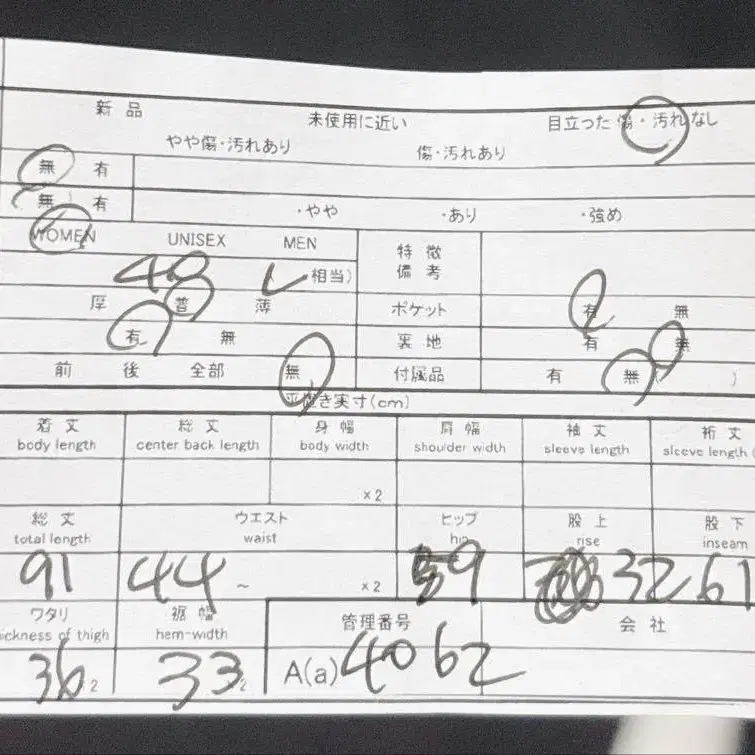 新品 未使用に近い 目立った傷・汚れなし
やや傷・汚れあり 傷・汚れあり
無 有
無 有 ・やや ・あり ・強め
WOMEN UNISEX MEN 特徴
備考
40 L 相当)
厚 普 薄 ポケット 有 無
有 無 裏地 有 無
前 後 全部 無 付属品 有 無( )
平置き実寸(cm)
着丈 総丈 身幅 肩幅 袖丈 裄丈
body length center back length body width shoulder width sleeve length sleeve length(
×2
総丈 ウエスト ヒップ 股上 股下
total length waist hip rise inseam
91 44 ~ ×2 59 32 61
ワタリ 裾幅 管理番号 会社
ickness of thigh hem-width
36 2 33 2 A(a) 4062